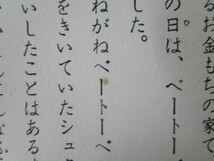 るお金もちの家で
の日は、ベートー
した。
ねがねベートーベ
をきいていたシュ
いしたことはあるま